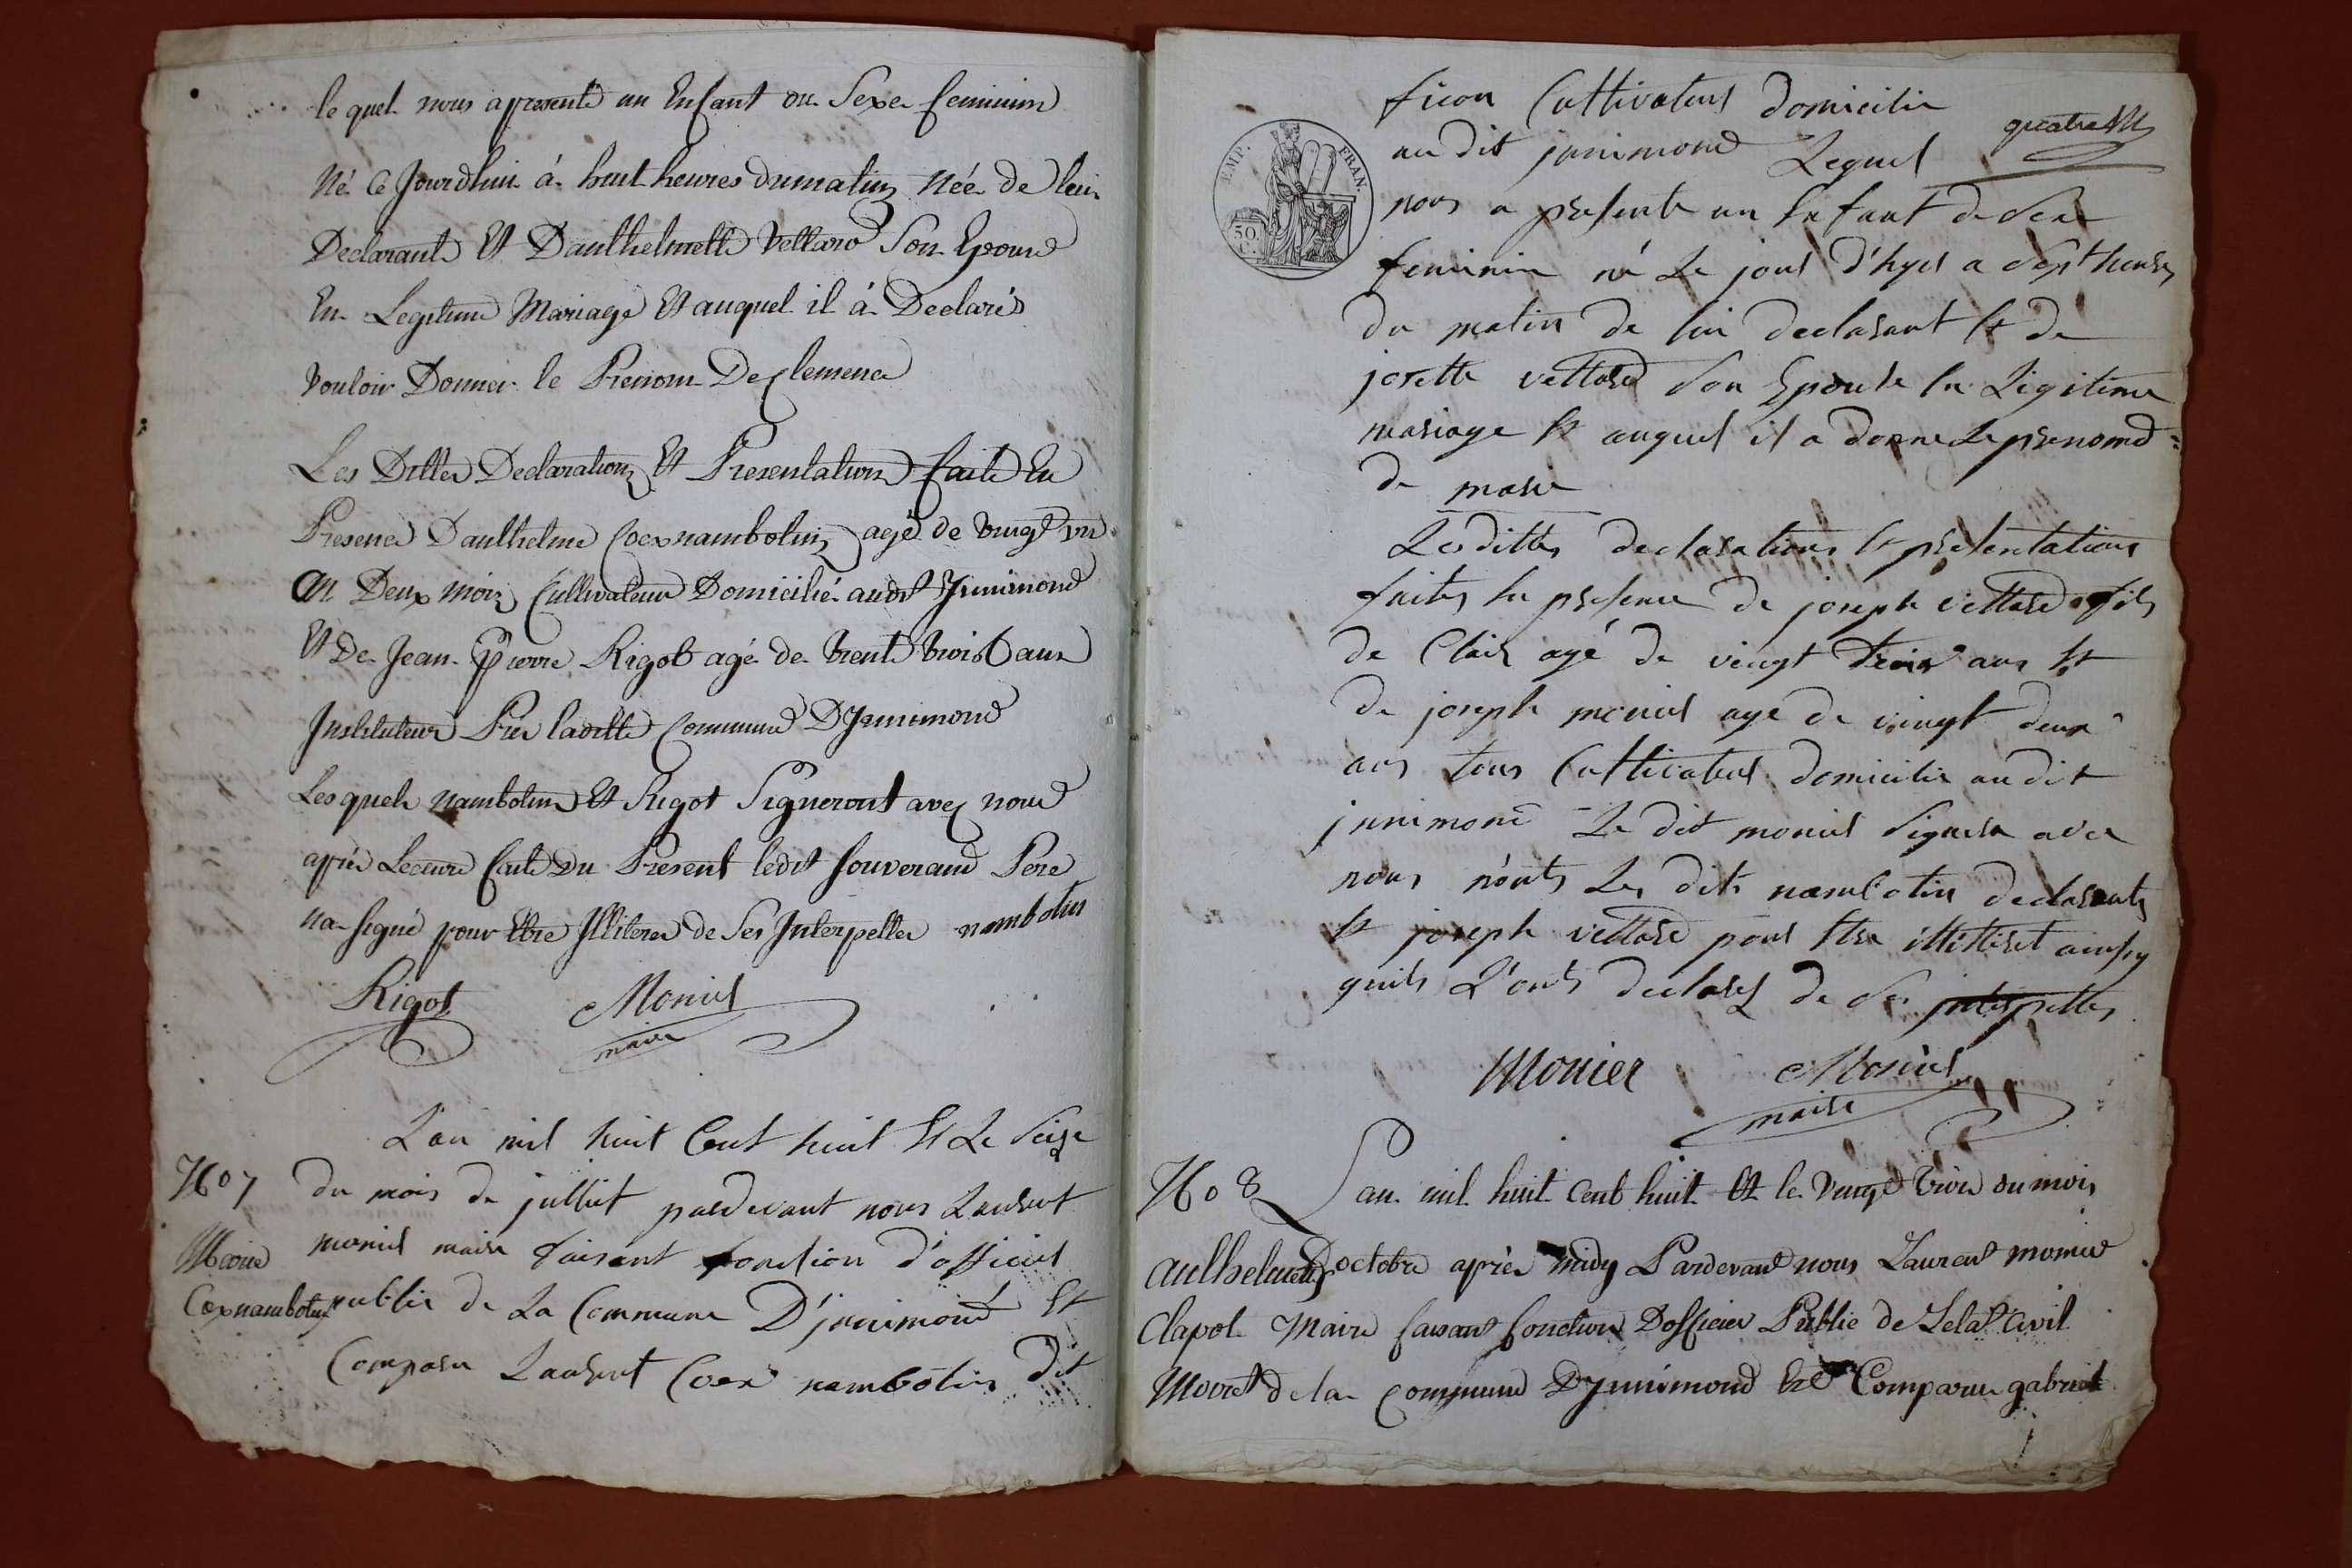 le quel nous apresenté un Enfant du Sexe feminin
Né Ce Jourdhui á huit heures dumatin Née de lui
Declarant Et Danthelmette Vettard Son Epouse
En Legitime Mariage Et auquel il á Declarés
vouloir Donner le Prenom De Clemence
Les Dittes Declarations Et Presentations faite En
Presence Danthelme Coex nambotin agé de vingt un
an Deux mois Cultivateur Domicilié audit Jzunimond
Et De Jean Pierre Rigot agé de trente trois ans
Instituteur Pres laditte Commune D'Jzunimond
Lesquels nambotin Et Rigot Signeront avec nous
après Lecture faite Du Present ledit Souverand Pere
na signé pour Etre Illiteré de Ses Interpeller nambotin
Rigot Monier
maire
L'an mil huit Cent huit Et Le Seize
No 7 du mois de julliet pardevant nous Laurent
Marie monier maire faisant fonction d'officier
Coex nambotin public de La Commune D'jzunimond Et
Comparu Laurent Coex nambotin dit
quatre
EMP. FRAN.
50 C.
ficon Cultivateur domicilié
au dit junimond Lequel
nous a presenté un Enfant de Sexe
feminin né Le jour d'hyer a Sept heures
du matin de lui declarant Et de
josette vettard Son Epouse En Légitime
mariage Et auquel il a donné Le prenomd
de marie
Les dittes declarations Et presentations
faites En presence de joseph vettard fils
de Clair agé de vingt trois ans Et
de joseph monier agé de vingt deux
ans tous Cultivateur domicilié au dit
junimond Le dit monier Signera avec
nous nonts Les dits nambotin declarants
Et joseph vettard pour Etre illitteret ainsy
quils L'onts declarez de Ses interpelles
Monier Monier
maire
No 8 Lan mil huit Cent huit Et le vingt trois du mois
aulhelmette Doctobre après midy Pardevant nous Laurent monier
Clapot Maire faisant fonction Dofficier Public de Letat Civil
Movret de la Commune D'Jzunimond Est Comparu gabriel